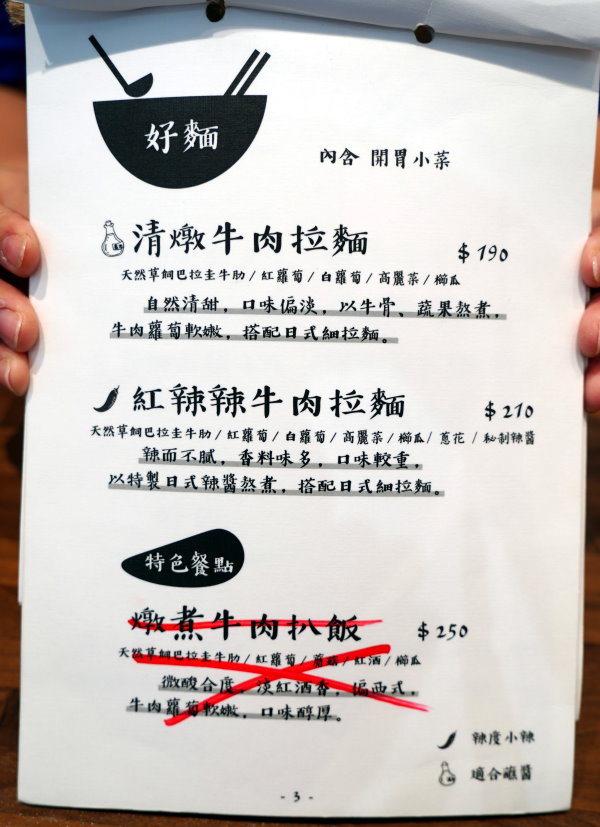 好麵
內含 開胃小菜
清燉牛肉拉麵 $190
天然草飼巴拉圭牛肋/紅蘿蔔/白蘿蔔/高麗菜/櫛瓜
自然清甜，口味偏淡，以牛骨、蔬果熬煮，
牛肉蘿蔔軟嫩，搭配日式細拉麵。
紅辣辣牛肉拉麵 $210
天然草飼巴拉圭牛肋/紅蘿蔔/白蘿蔔/高麗菜/櫛瓜/蔥花/秘制辣醬
辣而不膩，香料味多，口味較重，
以特製日式辣醬熬煮，搭配日式細拉麵。
特色餐點
燉煮牛肉扒飯 $250
天然草飼巴拉圭牛肋/紅蘿蔔/蘑菇/紅酒/櫛瓜
微酸合度，淡紅酒香，偏西式，
牛肉蘿蔔軟嫩，口味醇厚。
辣度小辣
適合蘸醬
- 3 -